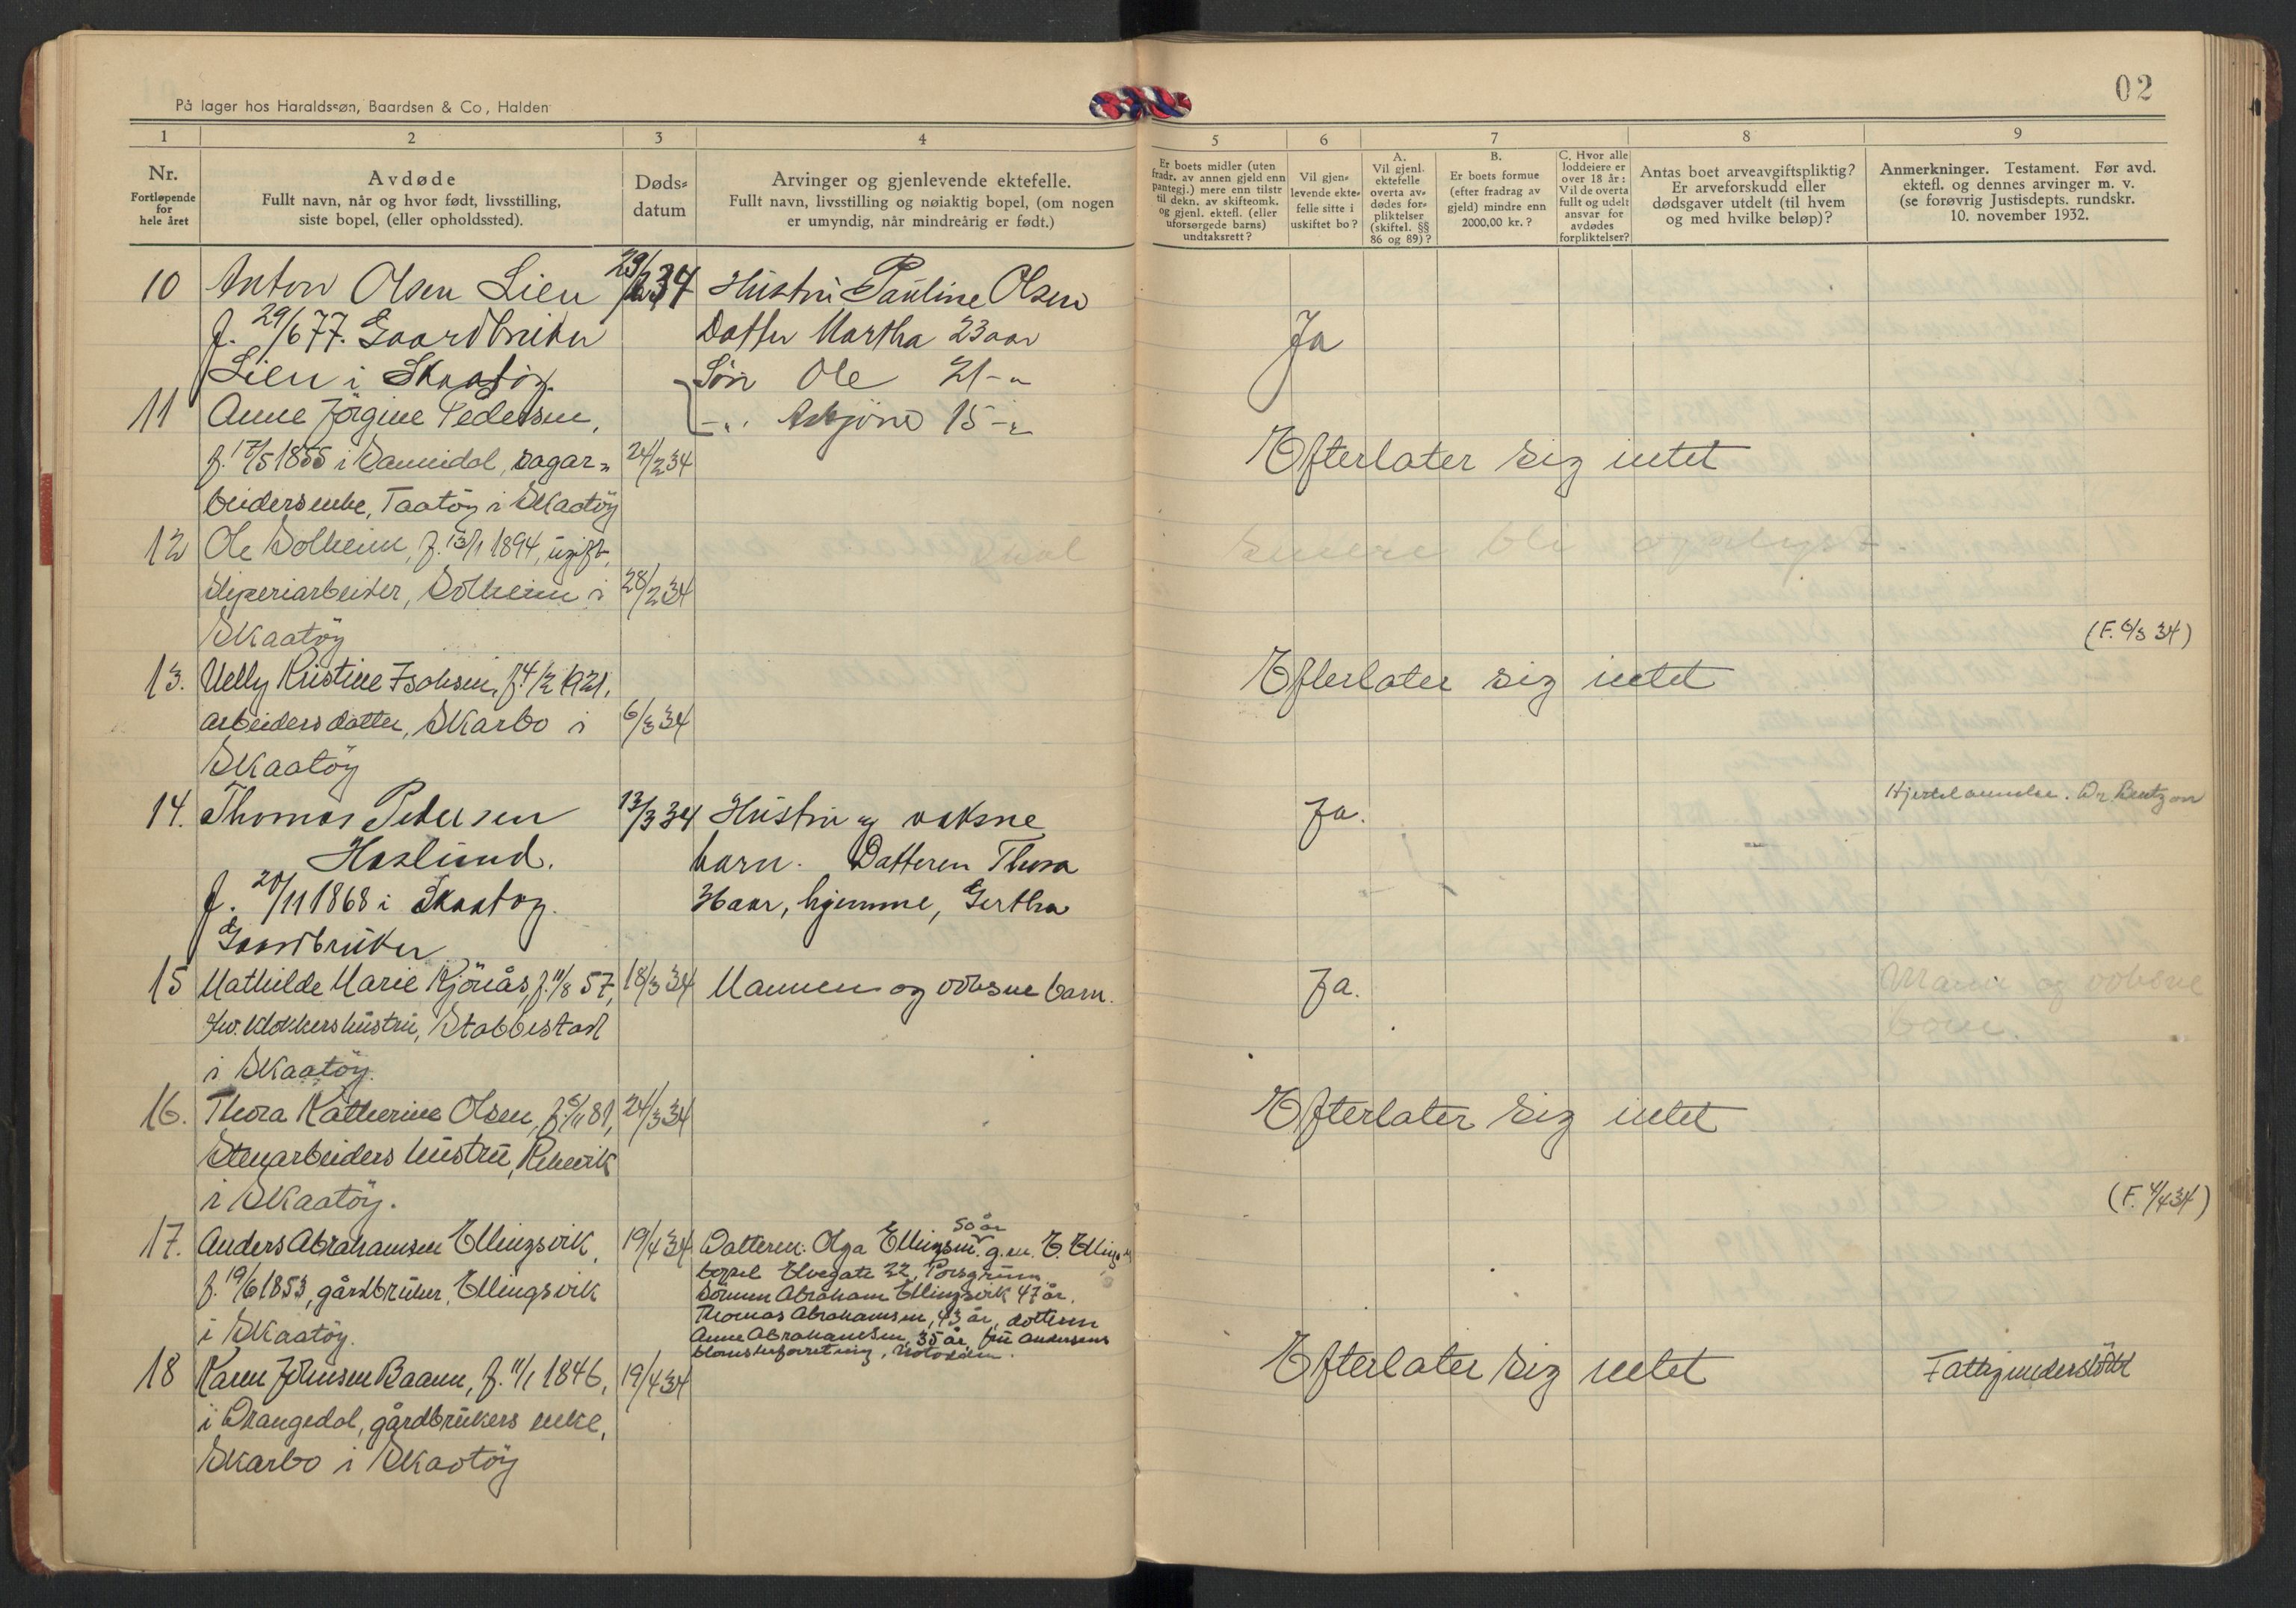 02
På lager hos Haraldssøn, Baardsen & Co, Halden
1 2 3 4 5 6 7 8 9
Nr.
Fortløpende
for
hele året
Avdøde
Fullt navn, når og hvor født, livsstilling,
siste bopel, (eller opholdssted).
Døds-
datum
Arvinger og gjenlevende ektefelle.
Fullt navn, livsstilling og nøiaktig bopel, (om nogen
er umyndig, når mindreårig er født.)
Er boets midler (uten
fradr. av annen gjeld enn
pantegj.) mere enn tilstr
til dekn. av skifteomk.
og gjenl. ektefl. (eller
uforsørgede barns)
undtaksrett?
Vil gjen-
levende ekte-
felle sitte i
uskiftet bo?
A.
Vil gjenl.
ektefelle
overta av-
dødes for-
pliktelser
(skiftel. §§
86 og 89)?
B.
Er boets formue
(efter fradrag av
gjeld) mindre enn
2000,00 kr.?
C. Hvor alle
loddeiere er
over 18 år:
Vil de overta
fullt og udelt
ansvar for
avdødes
forpliktelser?
Antas boet arveavgiftspliktig?
Er arveforskudd eller
dødsgaver utdelt (til hvem
og med hvilke beløp)?
Anmerkninger. Testament. Før avd.
ektefl. og dennes arvinger m. v.
(se forøvrig Justisdepts. rundskr.
10. november 1932.
10 Anton Olsen Lien 34 Hustru Pauline Olsen
f. 29/6 77. Gaardbruker Datter Martha 23 aar Ja
Lien i Skaatöy. Søn Ole 21 - "
11 Anne Jörgine Pedersen, - " . 15 - "
f. 17/5 1855 i Sannidal, sagar- 24/2 34 Efterlater sig intet
beidersenke, Taatöy i Skaatöy
12 Ole Solheim, f. 13/1 1894, ugift, senere bli oplyst
sliperiarbeider, Solheim i 28/2 34
Skaatöy (F. 6/3 34)
13. Nelly Kristine Isaksen, f. 4/2 1921, Efterlater sig intet
arbeidersdatter, Skarbo i 6/3 34
Skaatöy
14. Thomas Pedersen 13/3 34 Hustru og voksne Ja. Hjertelammelse. Dr. Bentzon
Haslund. barn. Datteren Thora
f. 20/11 1868 i Skaatöy. 36 aar, hjemme, Gertha
Gaardbruker
15 Mathilde Marie Kjönås, f. 11/8 57, 18/3 34 Mannen og voksne barn. Ja. Mann og voksne
klokkers hustru, Stabbestad barn.
i Skaatöy.
16. Thora Katherine Olsen, f. 5/11 81, 24/3 34 Efterlater sig intet
Stenarbeiders hustru,
i Skaatöy. (F. 4/4 34)
17. Anders Abrahamsen Ellingsvik, 19/4 34 Datteren: Olga Ellingsen 50 år g.m. E.
f. 19/6 1853, gårdbruker, Ellingsvik bopel Elvegate 32, Porsgrunn
i Skaatöy. Sönnen Abraham Ellingsvik 47 år.
Thomas Abrahamsen, 43 år, datteren
Anne Abrahamsen, 35 år, fru Andersens
blomsterforretning, Notodden.
18 Karen Johnsen Baann, f. 11/1 1846, 19/4 34 Efterlater sig intet Fattigunderstöttet
i Drangedal, gårdbrukers enke,
Skarbo i Skaatöy